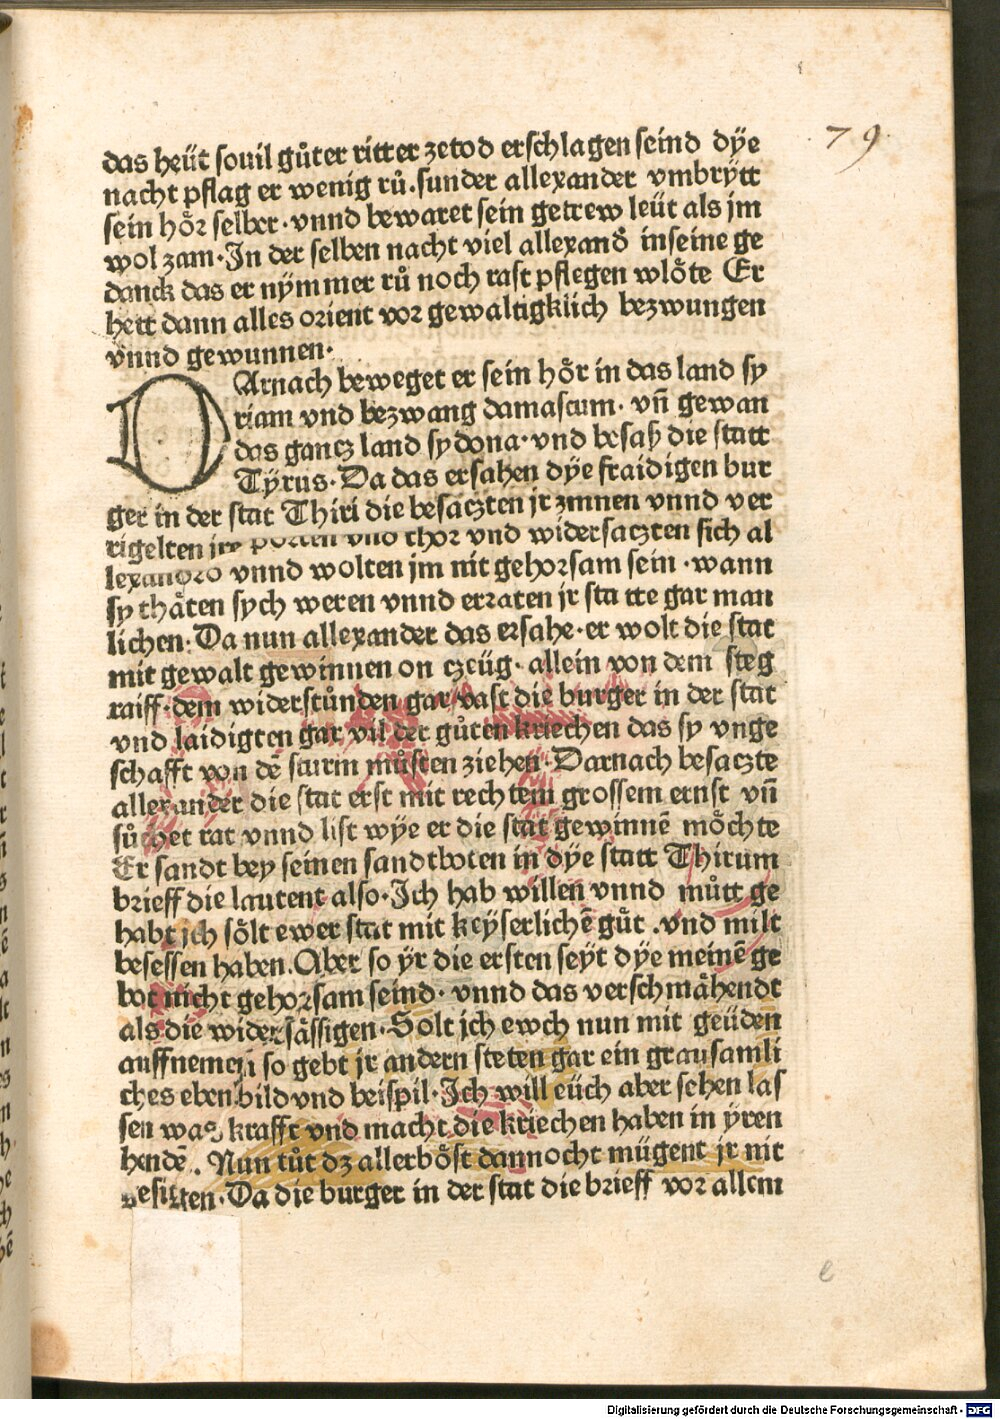 79
das heüt souil gůter ritter zetod erschlagen seind dÿe
nacht pflag er wenig rů. sunder allexander vmbrÿtt
sein hoͤr selber. vnnd bewaret sein getrew leüt als jm
wol zam. In der selben nacht viel allexand̛ in seine ge
danck das er nÿmmer rů noch rast pflegen wloͤte Er
hett dann alles orient vor gewaltigklich bezwungen
vnnd gewunnen.
DArnach beweget er sein hoͤr in das land sy
riam vnd bezwang damascum. vn̄ gewan
das gancz land sydona. vnd besaß die statt
Tÿrus. Da das ersahen dÿe fraidigen bur
ger in der stat Thiri die besaczten jr zinnen vnnd ver
rigelten jre porten vnd thor vnd widersaczten sich al
lexandro vnnd wolten jm nit gehorsam sein. wann
sy thaͤten sych weren vnnd erraten jr statte gar man
lichen. Da nun allexander das ersahe. er wolt die stat
mit gewalt gewinnen on czeüg. allein von dem steg
raiff. dem widerstůnden gar vast die burger in der stat
vnd laidigten gar vil der gůten kriechen das sy vnge
schafft von dē sturm můsten ziehen. Darnach besaczte
allexander die stat erst mit rechtem grossem ernst vn̄
sůchet rat vnnd list wÿe er die stat gewinnē moͤchte
Er sandt bey seinen sandtboten in dÿe statt Thirum
brieff die lautent also. Ich hab willen vnnd můtt ge
habt jch soͤlt ewer stat mit keÿserlichē gůt. vnd milt
besessen haben. Aber so ÿr die ersten seyt dÿe meinē ge
bot nicht gehorsam seind. vnnd das verschmaͤhendt
als die widersaͤssigen. Solt jch ewch nun mit geüden
auffnemen so gebt jr andern steten gar ein grausamli
ches ebenbild vnd beispil. Ich will eüch aber sehen las
sen was krafft vnd macht die kriechen haben in ÿren
hendē. Nun tůt dz allerboͤst dannocht mügent jr nit
gesigen. Da die burger in der stat die brieff vor allem
e
Digitalisierung gefördert durch die Deutsche Forschungsgemeinschaft - DFG